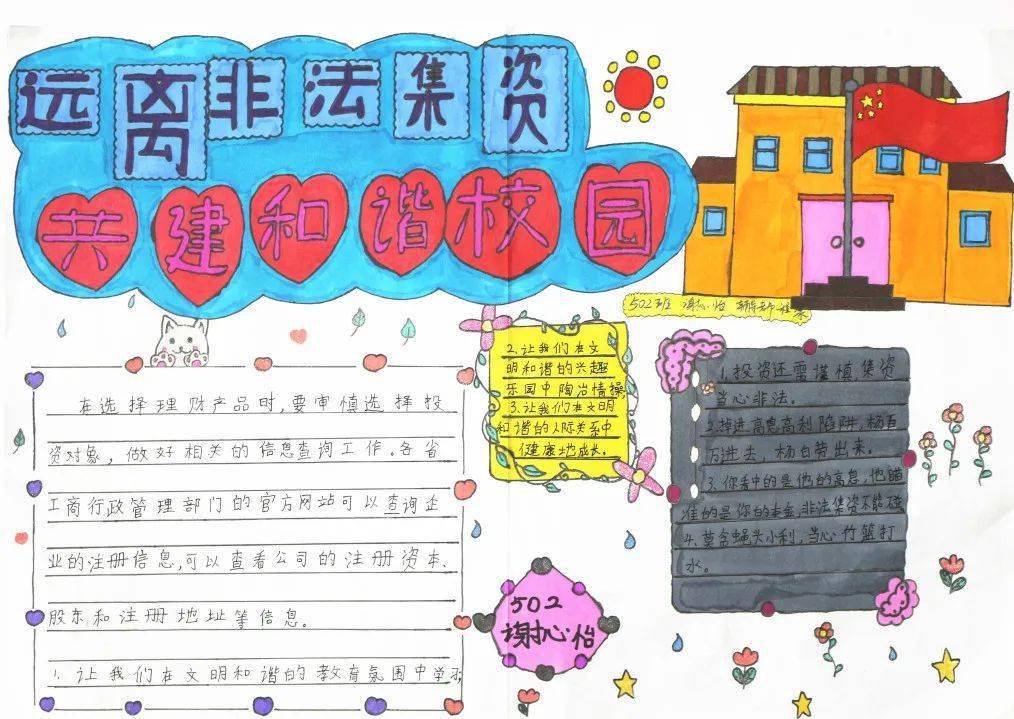 远离非法集资
共建和谐校园
502班 谢心怡
在选择理财产品时,要审慎选择投
资对象,做好相关的信息查询工作。各省
工商行政管理部门的官方网站可以查询企
业的注册信息,可以查看公司的注册资本、
股东和注册地址等信息。
1.让我们在文明和谐的教育氛围中学习
2.让我们在文
明和谐的兴趣
乐园中陶冶情操
3.让我们在文明
和谐的人际关系中
健康地成长。
502
谢心怡
1.投资还需谨慎,集资
当心非法。
2.掉进高息高利陷阱,杨百
万进去,杨白劳出来。
3.你看中的是他的高息,他瞄
准的是你的本金,非法集资不能碰
4.莫贪蝇头小利,当心竹篮打
水。